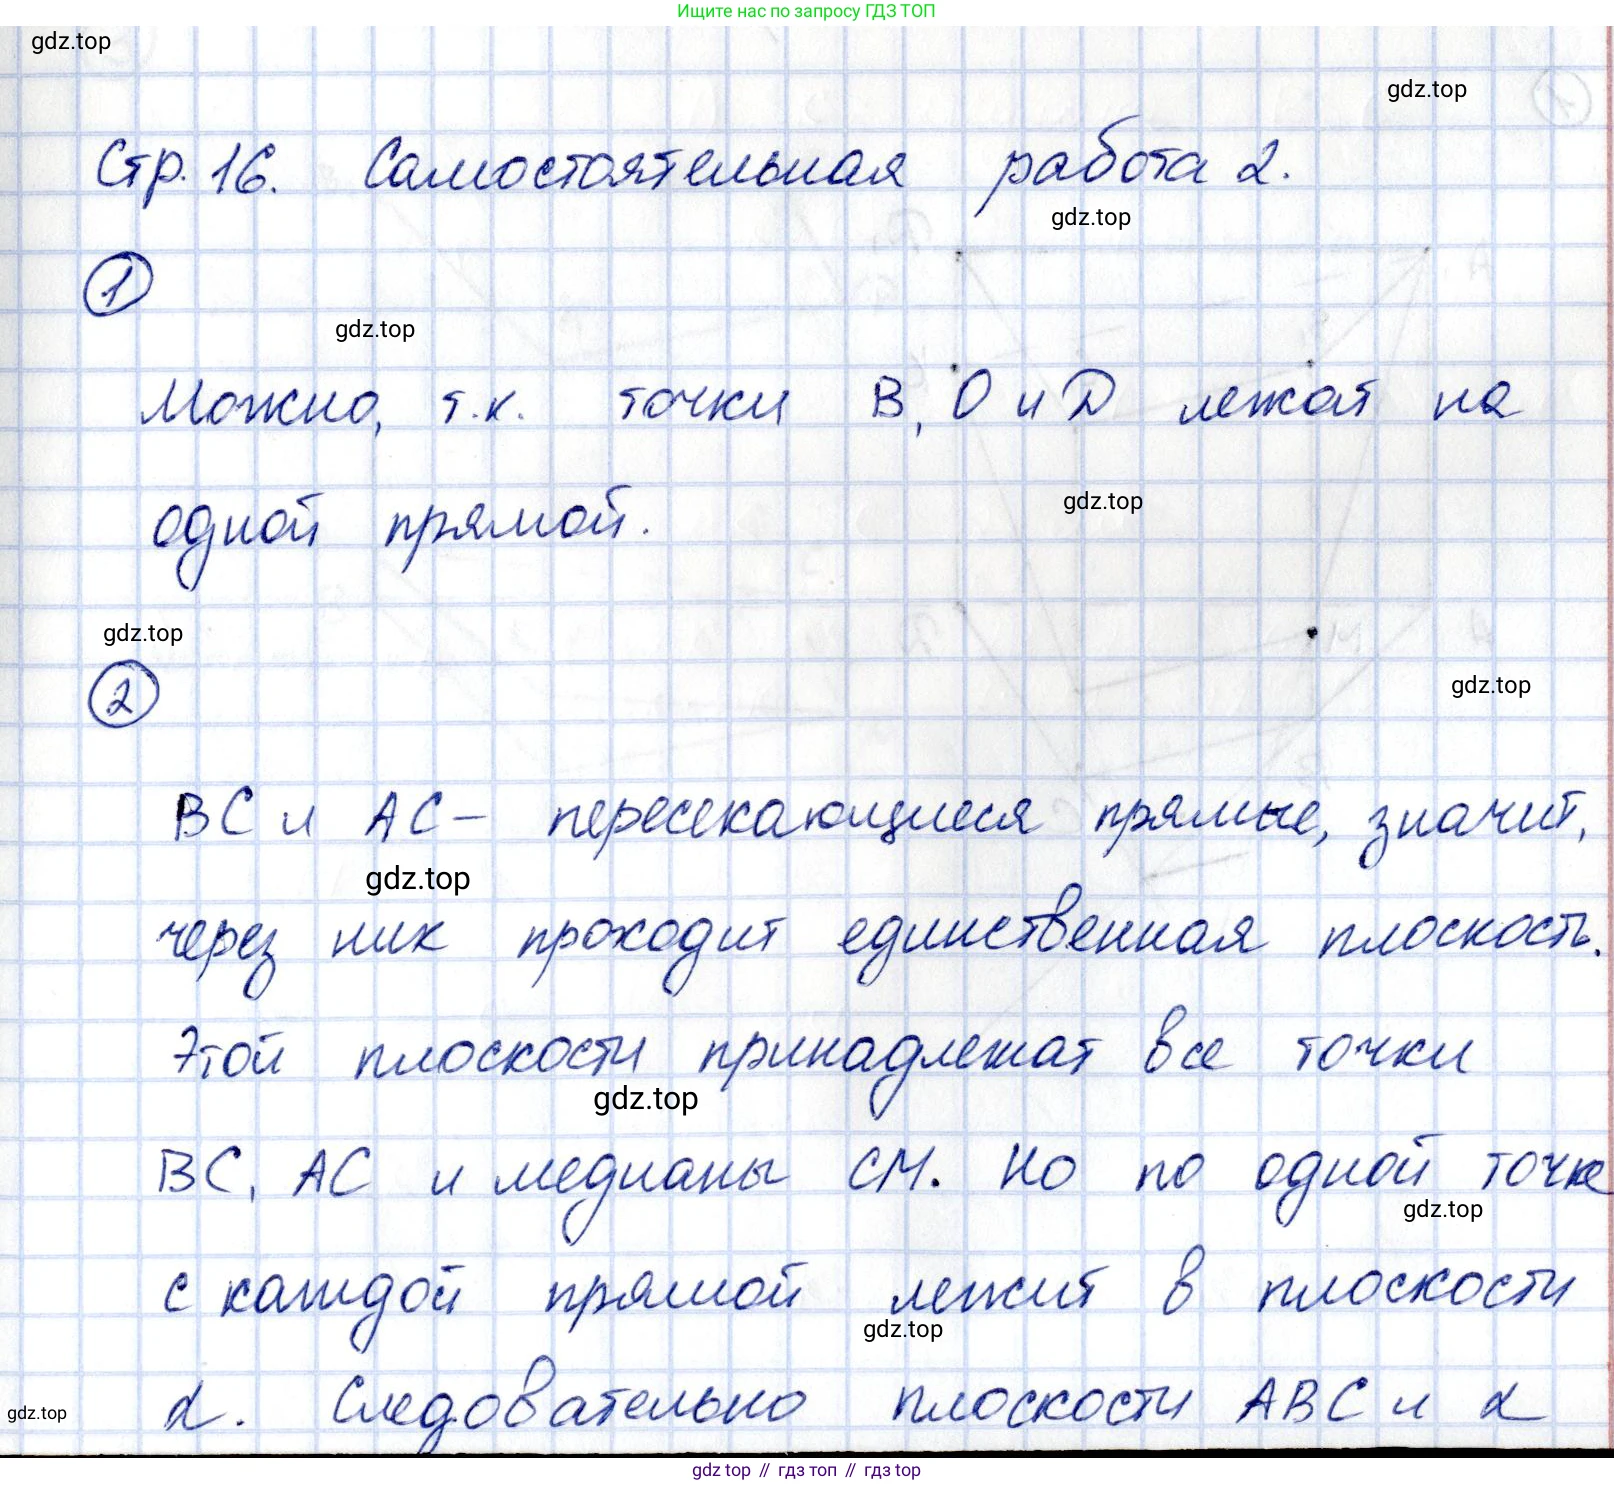 Ищите нас по запросу ГДЗ ТОП
gdz.top
gdz.top
Стр. 16. Самостоятельная работа 2.
gdz.top
1
gdz.top
Можно, т.к. точки В, О и D лежат на
gdz.top
одной прямой.
gdz.top
gdz.top
2
ВС и АС – пересекающиеся прямые, значит,
gdz.top
через них проходит единственная плоскость.
Этой плоскости принадлежат все точки
gdz.top
ВС, АС и медианы СМ. Но по одной точке
gdz.top
с каждой прямой лежит в плоскости
gdz.top
α. Следовательно плоскости АВС и α
gdz.top
gdz top // гдз топ // гдз top